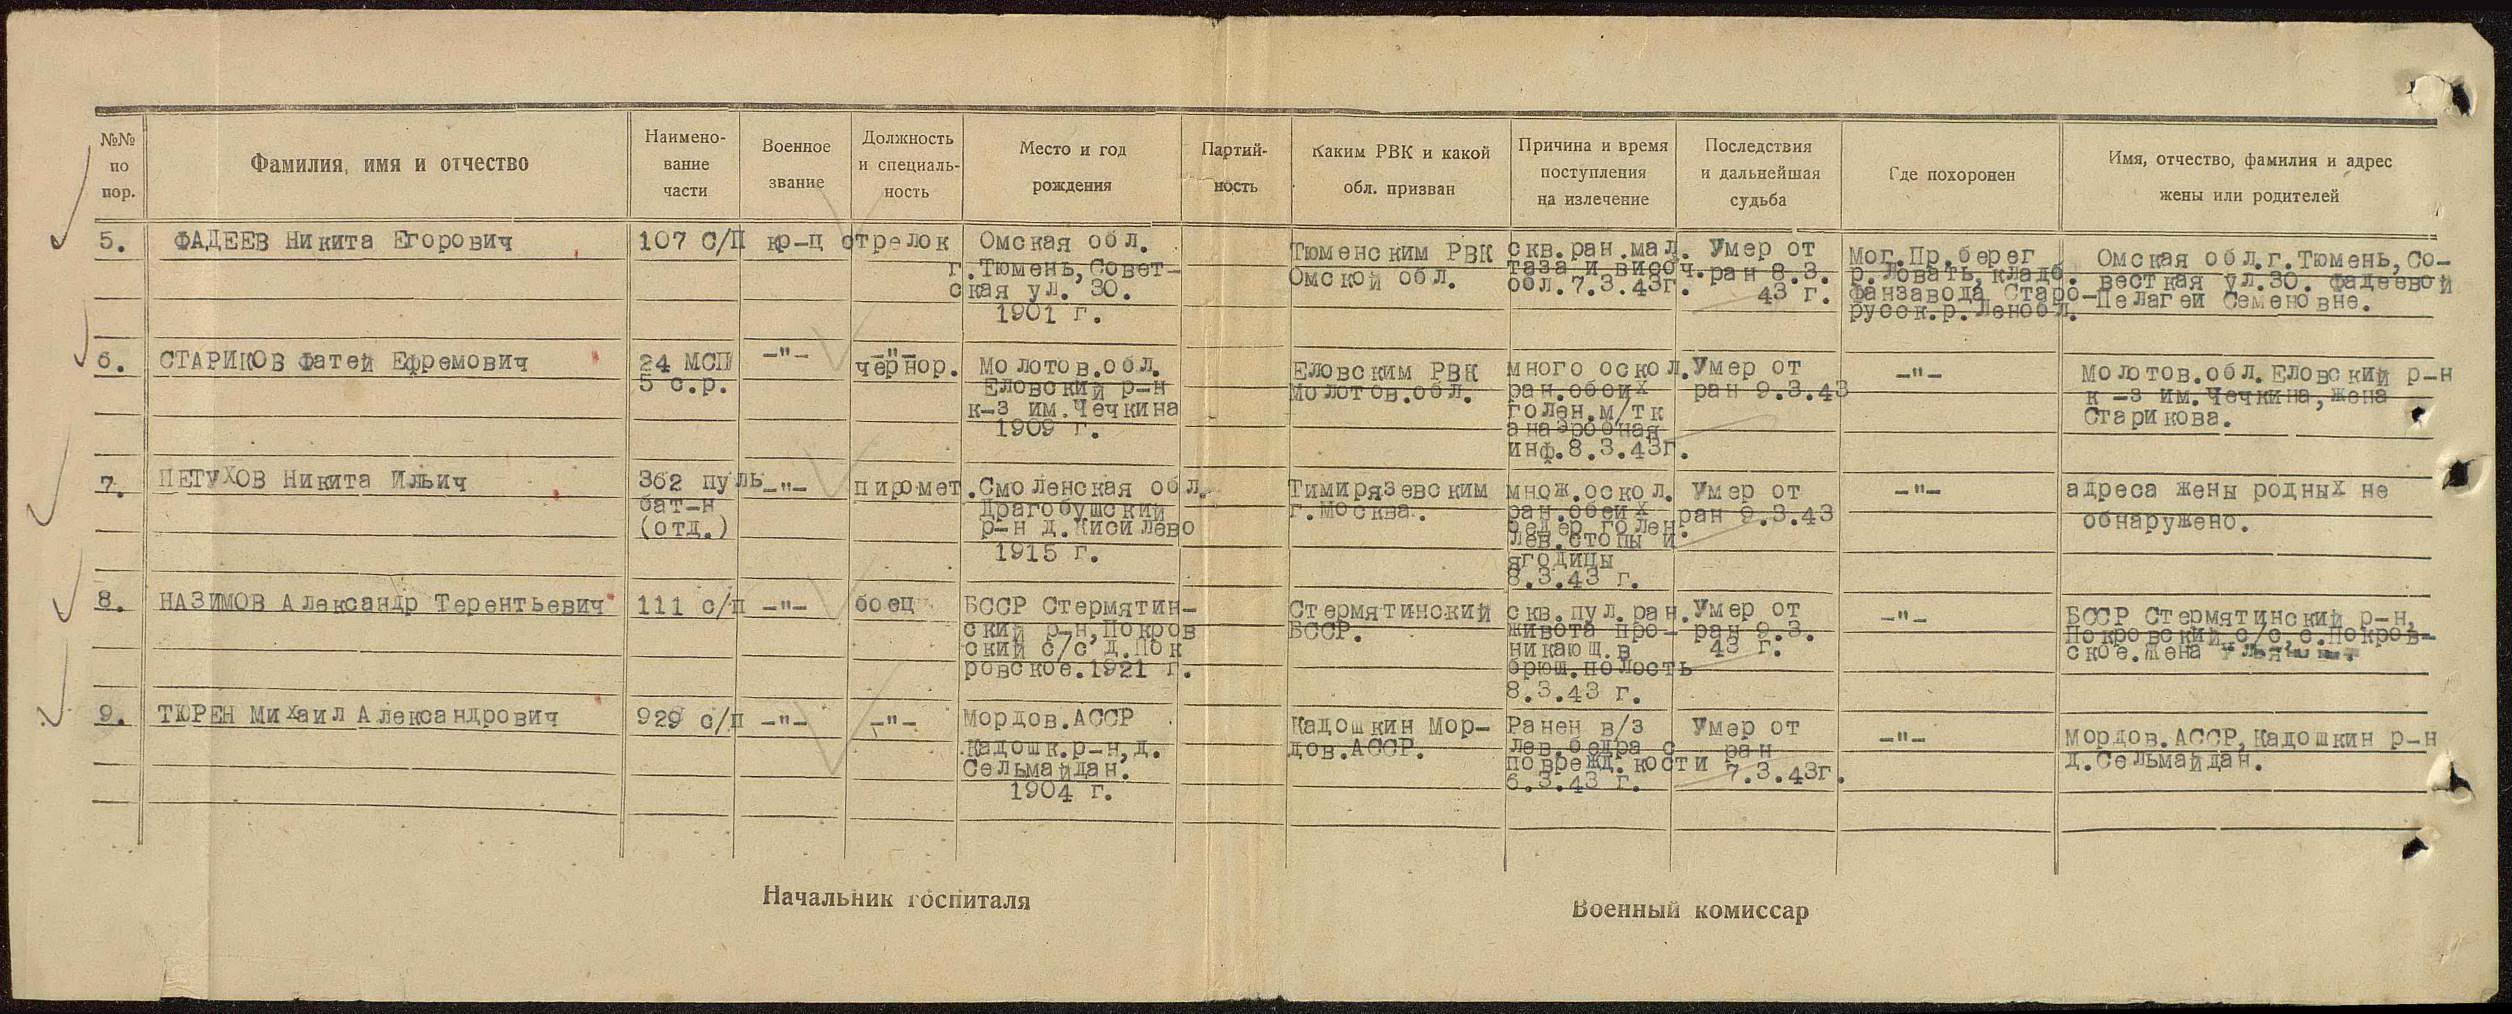 №№ по пор.
Фамилия, имя и отчество
Наимено-
вание
части
Военное
звание
Должность
и специаль-
ность
Место и год
рождения
Партий-
ность
Каким РВК и какой
обл. призван
Причина и время
поступления
на излечение
Последствия
и дальнейшая
судьба
Где похоронен
Имя, отчество, фамилия и адрес
жены или родителей
5.
ФАДЕЕВ Никита Егорович
107 С/П
кр-ц
стрелок
Омская обл.
г.Тюмень,Совет-
ская ул. 30.
1901 г.
Тюменским РВК
Омской обл.
скв.ран.мал.
таза и височ.
обл.7.3.43г.
Умер от
ран 8.3.
43 г.
Мог.Пр.берег
р.Ловать,кладб.
фанзавода Старо-
русск.р.Ленобл.
Омская обл.г.Тюмень,Со-
весткая ул.30. Фадеевой
Пелагеи Семеновне.
6.
СТАРИКОВ Фатей Ефремович
24 МСП
5 с.р.
-"-
-"-
чернор.
Молотов.обл.
Еловский р-н
к-з им.Чечкина
1909 г.
Еловским РВК
Молотов.обл.
много оскол.
ран.обоих
голен.м/тк
анаэробная
инф.8.3.43г.
Умер от
ран 9.3.43
-"-
Молотов.обл.Еловский р-н
к -з им.Чечкина,жена
Старикова.
7.
ПЕТУХОВ Никита Ильич
362 пуль
бат-н
(отд.)
-"-
пиромет.
Смоленская обл.
Драгобушский
р-н д.Кисилево
1915 г.
Тимирязевским
г.Москва.
множ.оскол.
ран.обеих
бедер голен.
лев.стопы и
ягодицы
8.3.43 г.
Умер от
ран 9.3.43
-"-
адреса жены родных не
обнаружено.
8.
НАЗИМОВ Александр Терентьевич
111 с/п
-"-
боец
БССР Стермятин-
ский р-н,Покров
ский с/с д.Пок
ровское.1921 г.
Стермятинский
БССР.
скв.пул.ран.
живота про-
никающ.в
брюш.полость
8.3.43 г.
Умер от
ран 9.3.
43 г.
-"-
БССР Стермятинский р-н,
Покровский с/с,с.Покров-
ское.Жена
9.
ТЮРЕН Михаил Александрович
929 с/п
-"-
-"-
Мордов.АССР
Кадошк.р-н,д.
Сельмайдан.
1904 г.
Кадошкин Мор-
дов.АССР.
Ранен в/з
лев.бедра с
поврежд.кости
6.3.43 г.
Умер от
ран
7.3.43г.
-"-
Мордов.АССР,Кадошкин р-н
д.Сельмайдан.
Начальник госпиталя
Военный комиссар